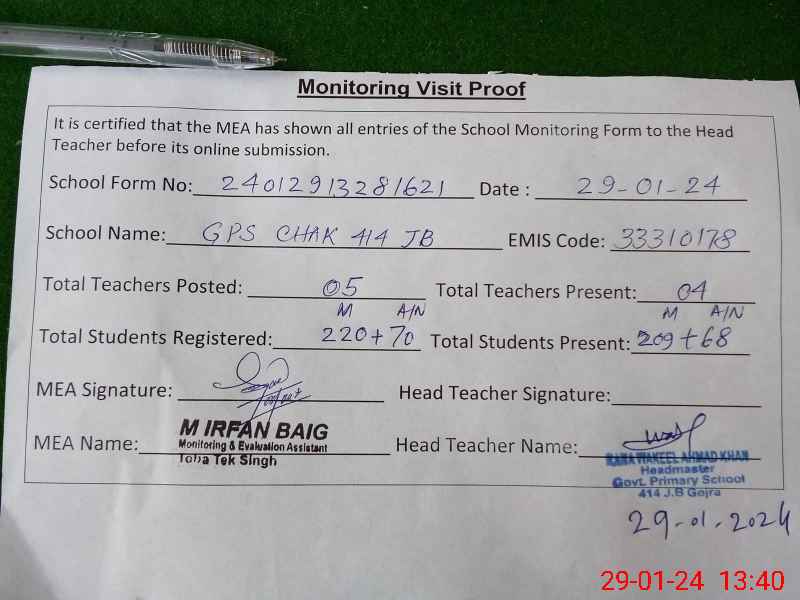 Monitoring Visit Proof
It is certified that the MEA has shown all entries of the School Monitoring Form to the Head
Teacher before its online submission.
School Form No: 24012913281621 Date : 29-01-24
School Name: GPS CHAK 414 JB EMIS Code: 33310178
Total Teachers Posted: 05 Total Teachers Present: 04
M A/N M A/N
Total Students Registered: 220+70 Total Students Present: 209+68
MEA Signature: Head Teacher Signature:
MEA Name: M IRFAN BAIG Head Teacher Name:
Monitoring & Evaluation Assistant
Toba Tek Singh
RANA WAKEEL AHMAD KHAN
Headmaster
Govt. Primary School
414 J.B Gojra
29-01-2024
29-01-24 13:40